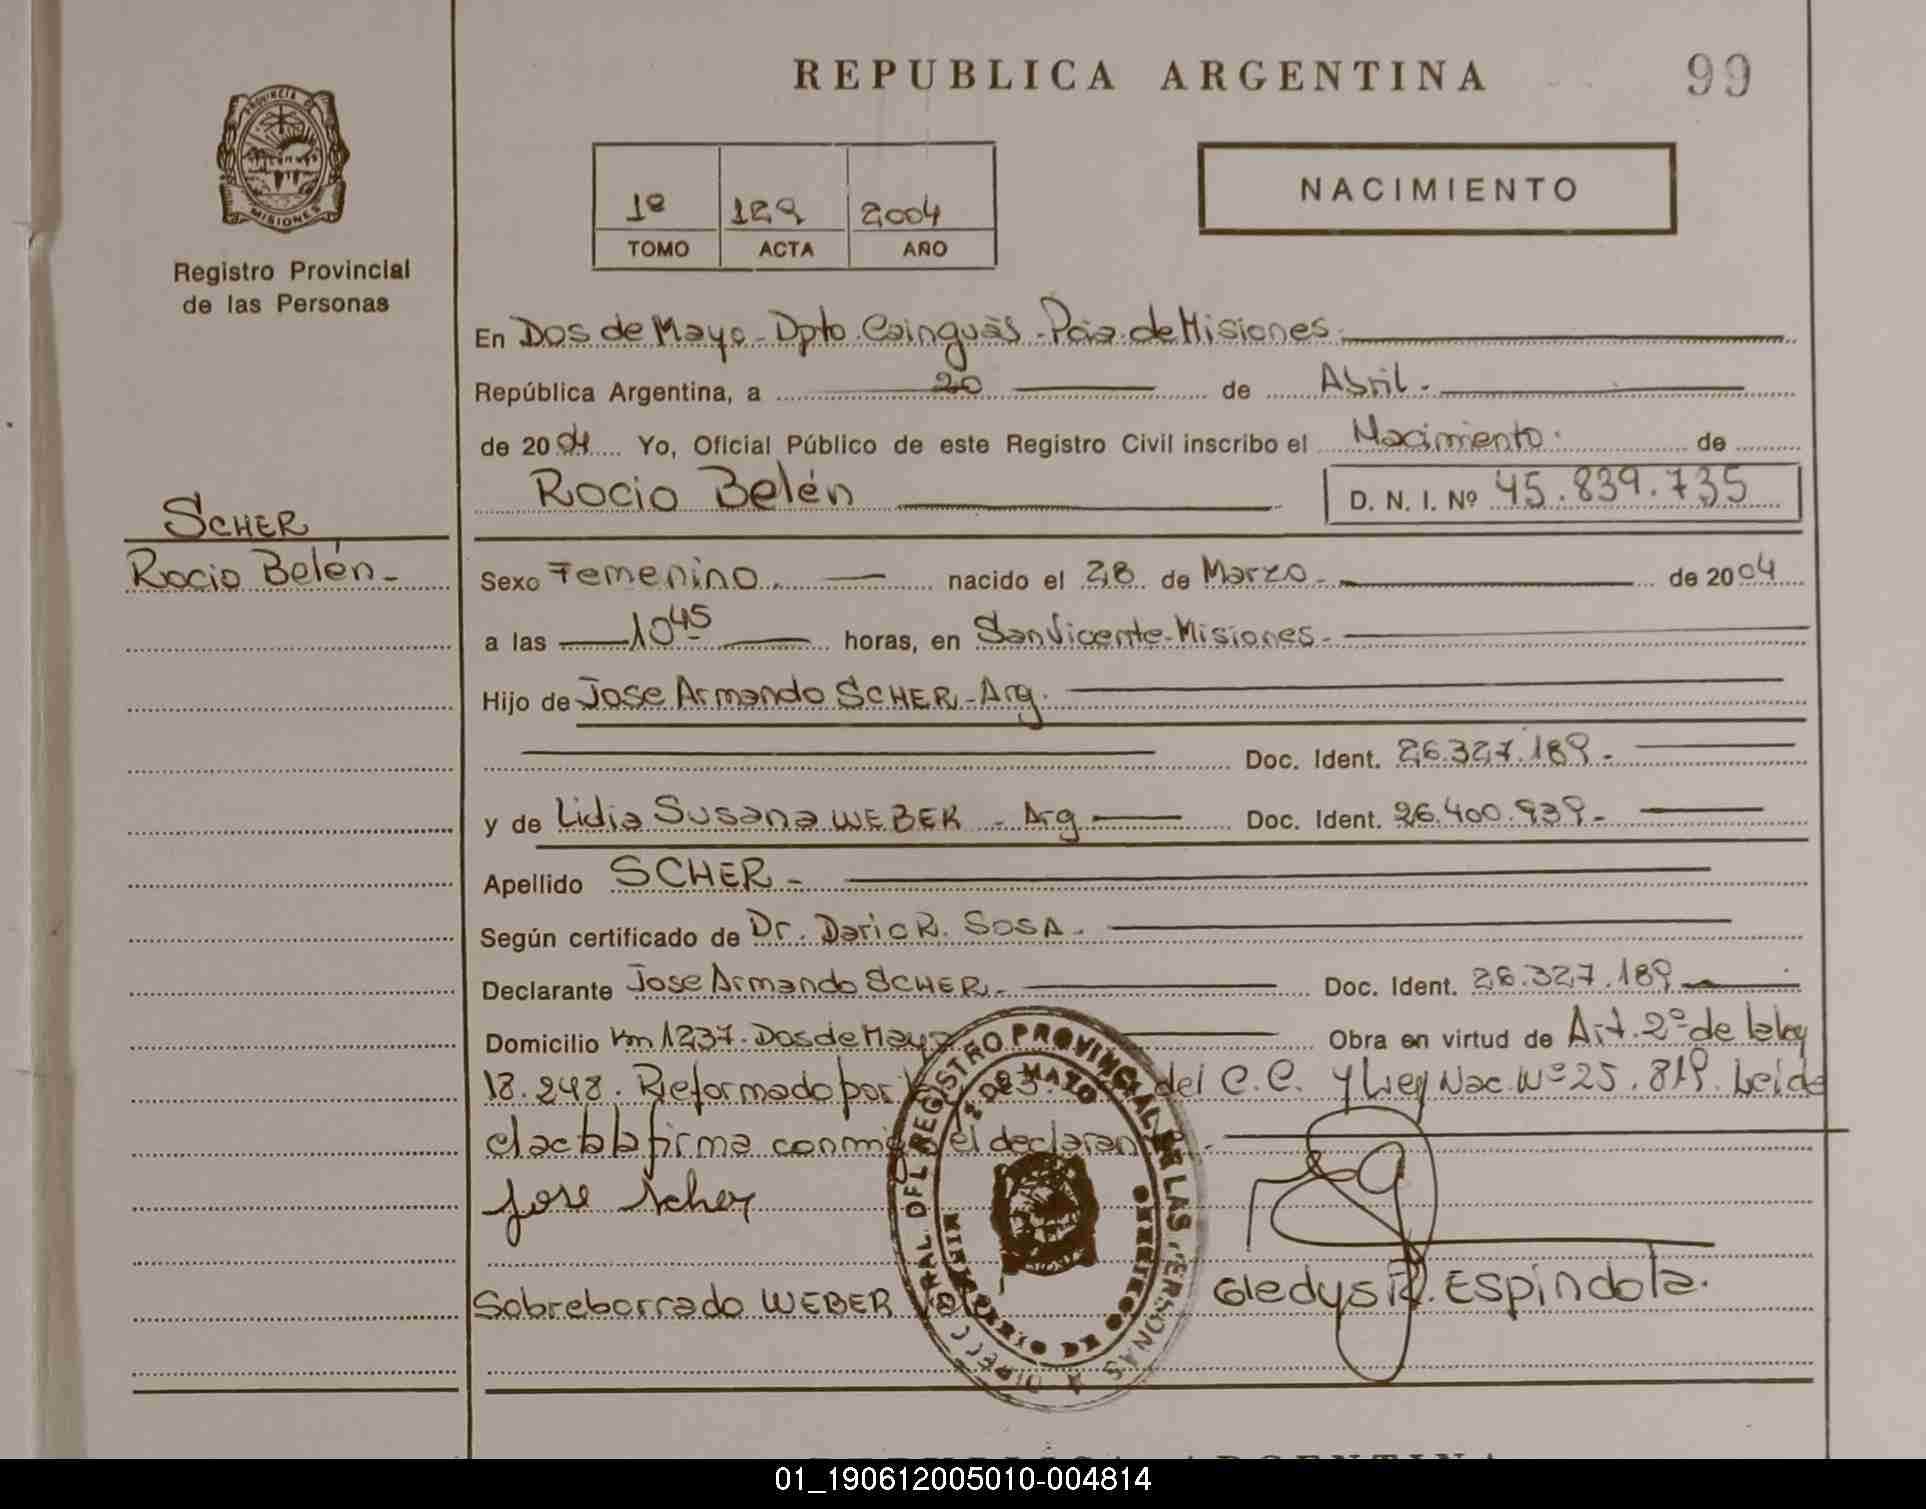 REPUBLICA ARGENTINA
99
PROVINCIA DE
MISIONES
Registro Provincial
de las Personas
1º 129 2004
TOMO ACTA AÑO
NACIMIENTO
En Dos de Mayo - Dpto. Cainguás - Pcia. de Misiones.
República Argentina, a 20 de Abril.
de 2004 Yo, Oficial Público de este Registro Civil inscribo el Nacimiento. de
Rocio Belén D. N. I. Nº 45.839.735
SCHER
Rocio Belén-
Sexo Femenino. nacido el 28 de Marzo. de 2004
a las 10 45 horas, en San Vicente - Misiones.
Hijo de Jose Armando SCHER - Arg.
Doc. Ident. 26.327.189.-
y de Lidia Susana WEBER - Arg Doc. Ident. 26.400.939.-
Apellido SCHER -
Según certificado de Dr. Dario R. SOSA.
Declarante Jose Armando SCHER.- Doc. Ident. 26.327.189
Domicilio Km 1237. Dos de Mayo Obra en virtud de Art. 2º de la ley
18.248. Reformado por del C.C. y Ley Nac. Nº 25.819. Leida
el acta la firma conmigo el declarante.-
Jose Scher
Sobreborrado WEBER Vale
Gledys R. Espíndola.
DIRECC. GRAL. DEL REGISTRO PROVINCIAL DE LAS PERSONAS
2 DE MAYO
REPUBLICA ARGENTINA
01_190612005010-004814